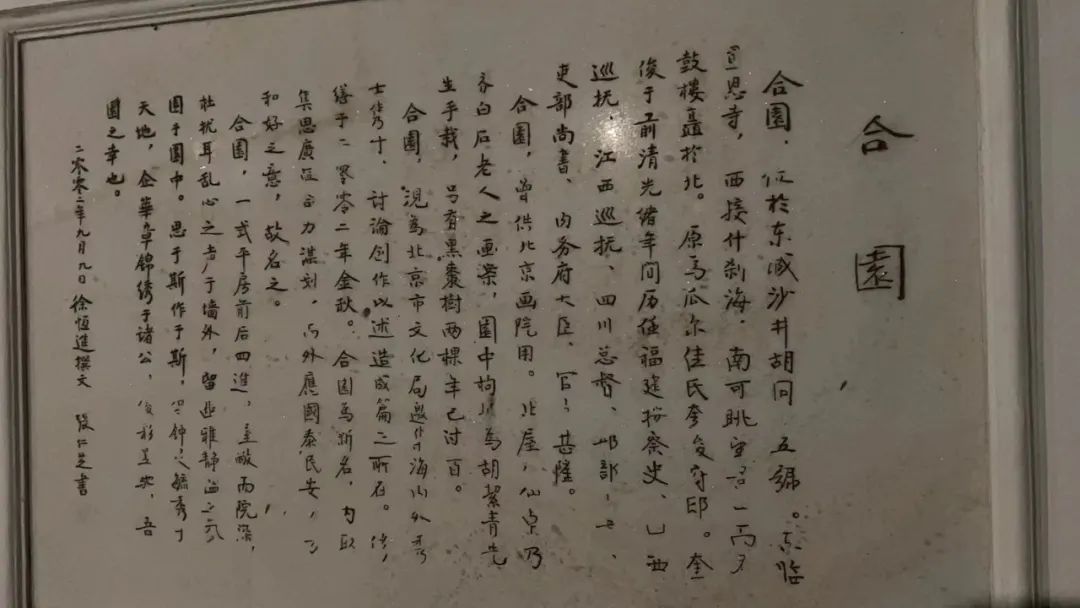 合園
合園，位於东城沙井胡同 五號。东临
宣恩寺，西接什刹海，南可眺
鼓楼矗於北。原为瓜尔佳氏奎俊守邸。奎
俊于前清光绪年间历任福建按察史、山西
巡抚、江西巡抚、四川总督、部
吏部尚书、内务府大臣、官甚隆。
合園，曾供北京画院用。北屋，仙中乃
齐白石老人之画案，園中枸为胡絜青先
生手栽，另有黑棗樹两棵年已过百。
合園，現为北京市文化局邀海内外
士，讨论创作以述造成篇之所在。
缮于二零零二年金秋。合園为新名，内取
集思廣益合力谋划，外應國泰民安，
和好之意，故名之。
合園，一式平房前后四進，而院深，
杜扰耳乱心之声于墙外，留幽雅静谧之氛
围于園中。思于斯作于斯，钟之毓秀
天地，企華章锦绣于诸公，吾
園之幸也。
二零零二年九月九日 徐恒進撰文 段仁芝書